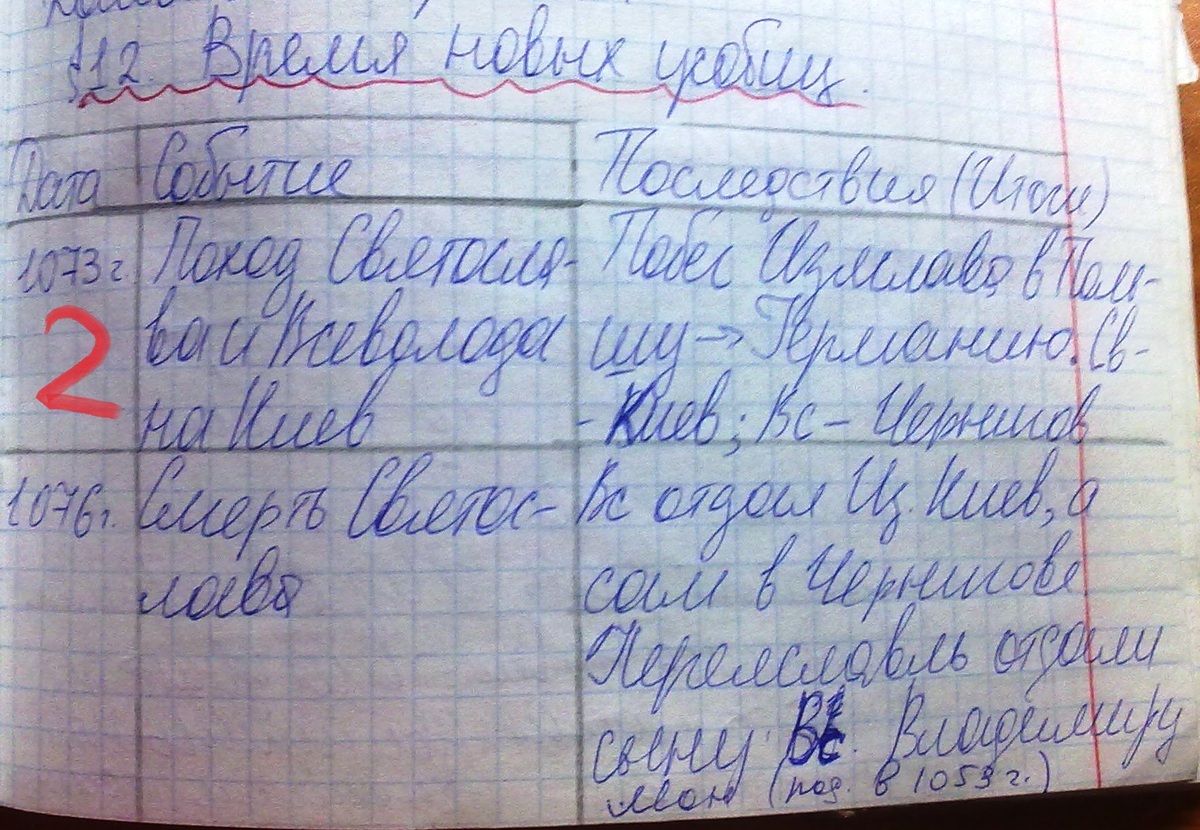 §12. Время новых усобиц.
Дата Событие Последствия (Итоги)
1073 г. Поход Святосла- Побег Изяслава в Поль-
2 ва и Всеволода шу → Германию. Св-
на Киев - Киев; Вс – Чернигов
1076 г. Смерть Святос- Вс отдал Из. Киев, а
лава сам в Чернигове
Переяславль отдали
сыну Вс. Владимиру
Мон (род. в 1053 г.)